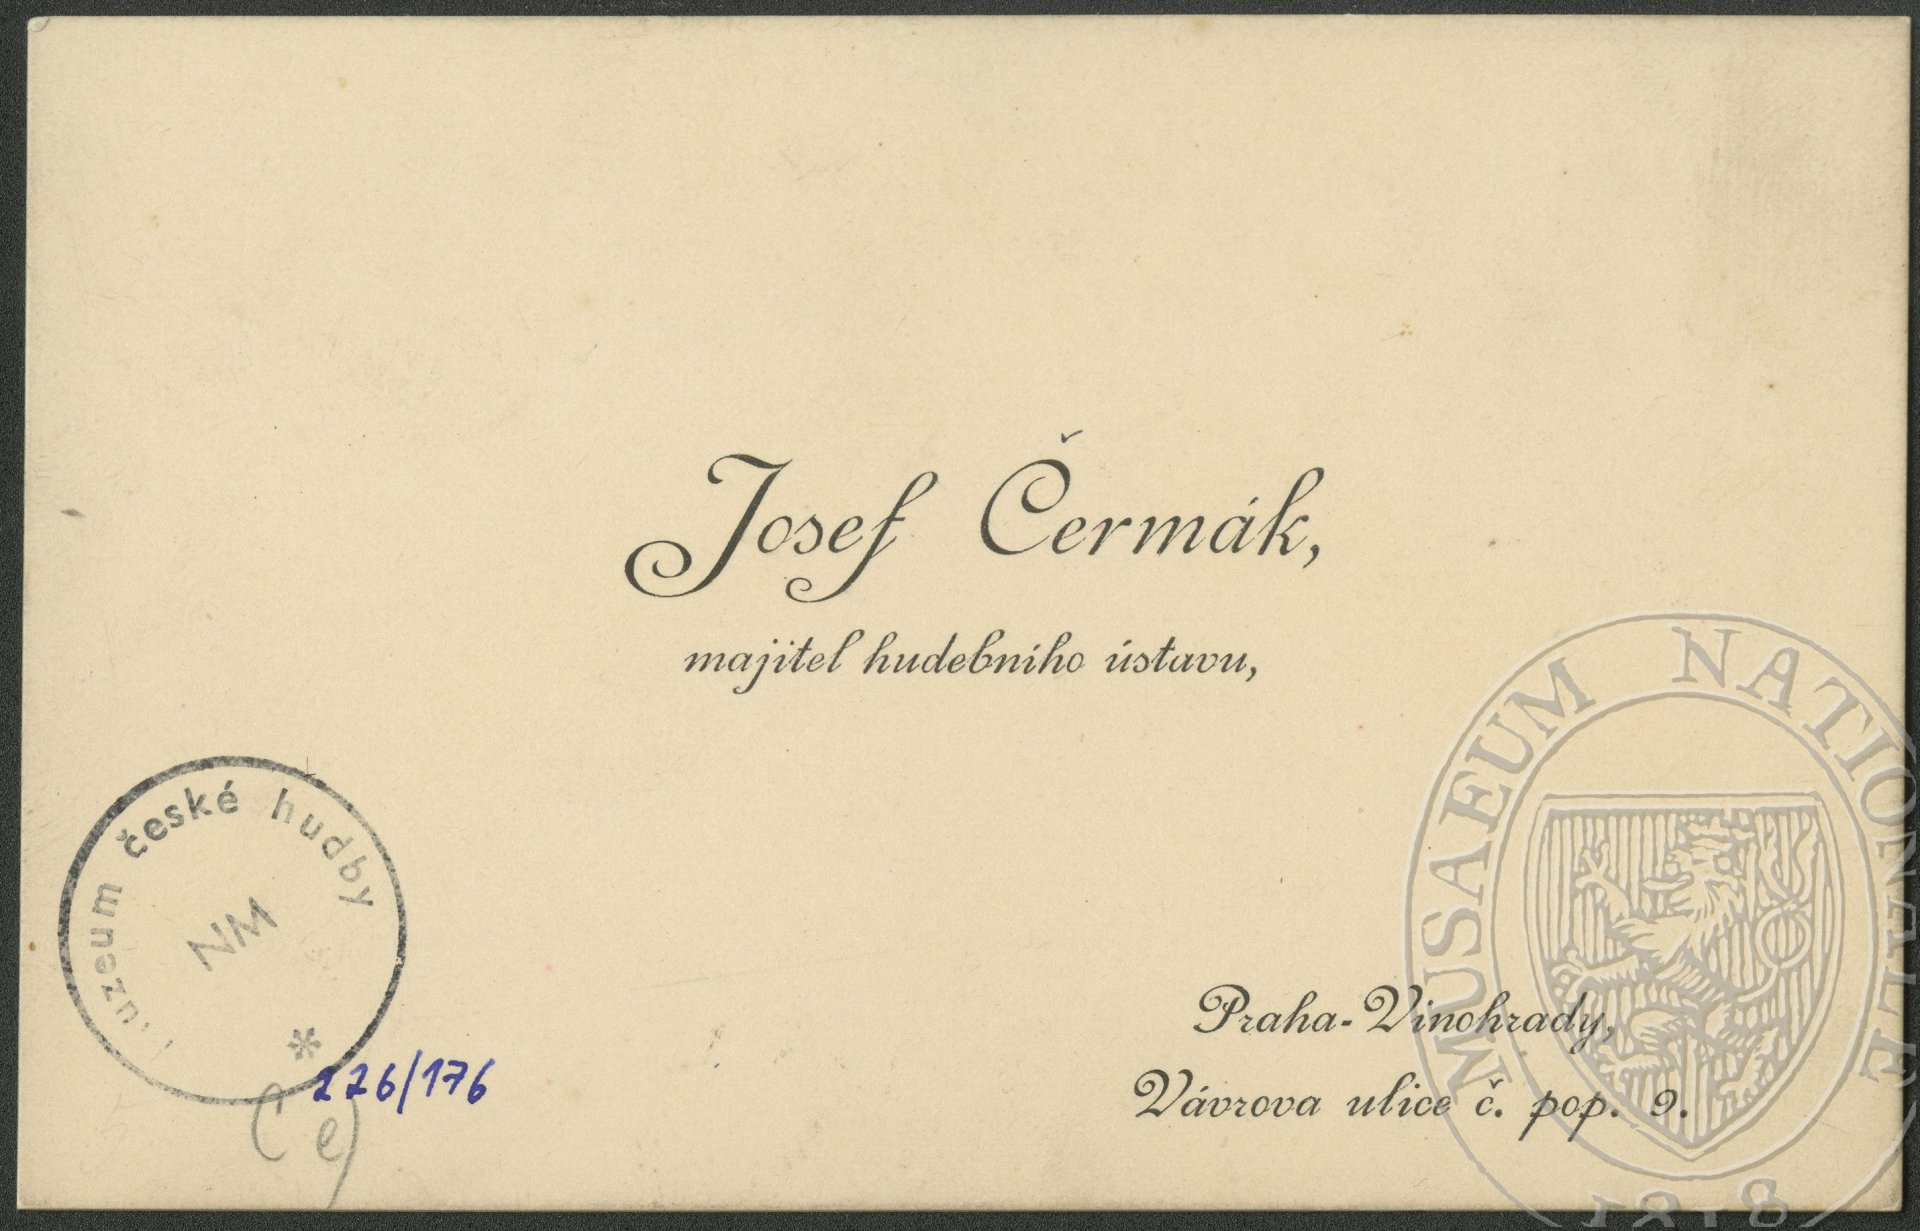 Josef Čermák,
majitel hudebního ústavu,
Praha-Vinohrady,
Vávrova ulice č. pop. 9.
uzeum české hudby
NM
*
226/176
Če
MUSAEUM NATIONALE
1818